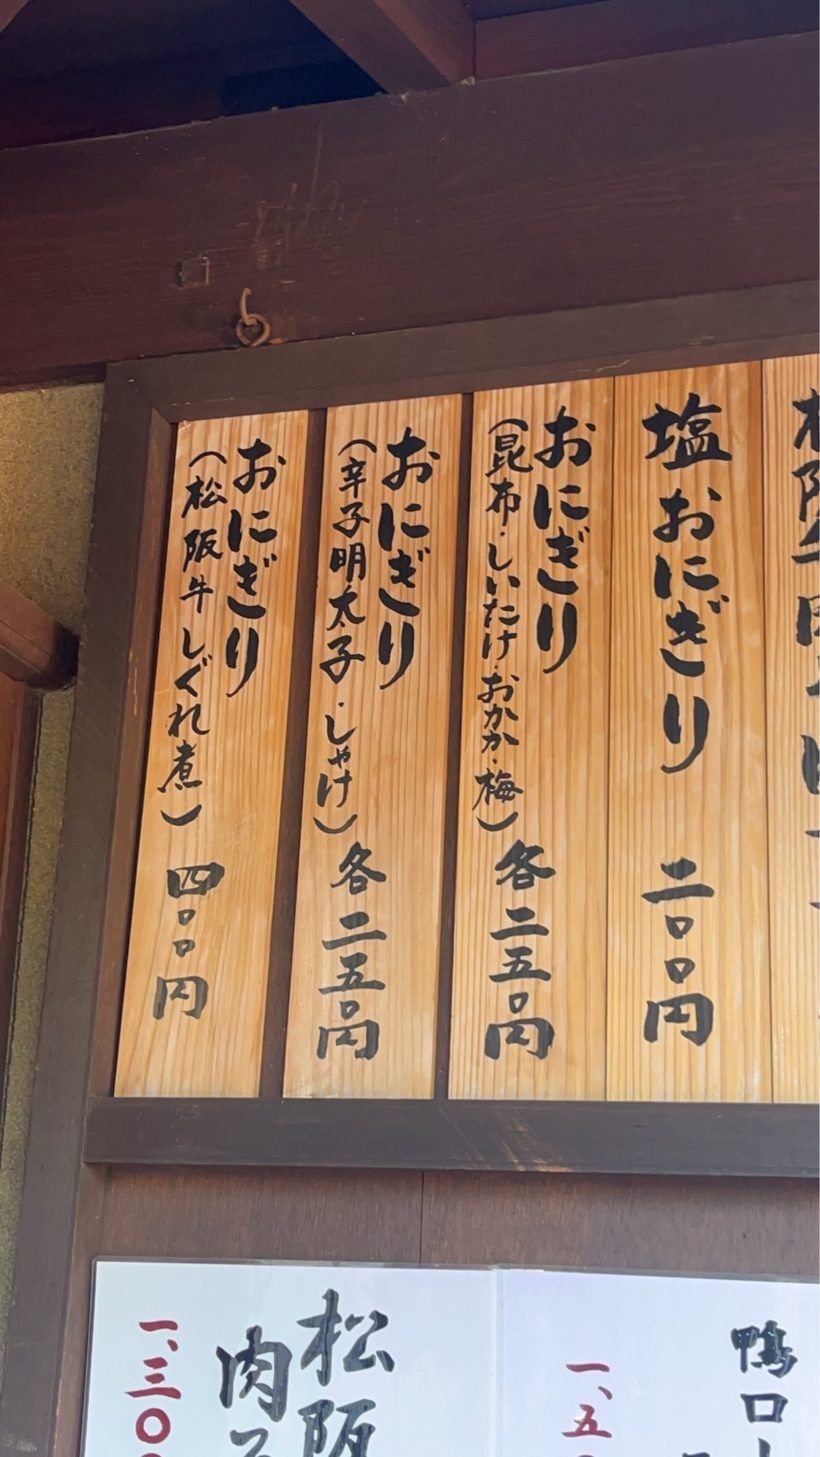 塩おにぎり 二〇〇円
おにぎり
(昆布・しいたけ・おかか・梅)
各二五〇円
おにぎり
(辛子明太子・しゃけ)
各二五〇円
おにぎり
(松阪牛しぐれ煮)
四〇〇円
鴨ロ
一、五
松阪
肉
一、三〇